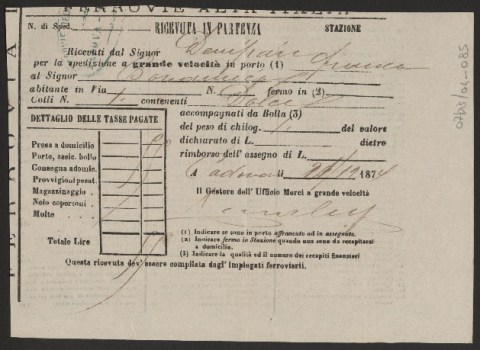 FERROVIE ALTA ITALIA
N. di Sped. RICEVUTA IN PARTENZA STAZIONE
Ricevuti dal Signor
per la spedizione a grande velocità in porto (1)
al Signor
abitante in Via N. fermo in (2)
Colli N. 1 contenenti Dolci
DETTAGLIO DELLE TASSE PAGATE
Presa a domicilio
Porto, assic. bollo
Consegna a domic.
Provvigioni pesat.
Magazzinaggio
Nolo coperoni
Multe
Totale Lire
accompagnati da Bolla (3)
del peso di chilog. 1 del valore
dichiarato di L. dietro
rimborso dell'assegno di L.
A Padova li 24/12 1874
Il Gestore dell'Ufficio Merci a grande velocità
(1) Indicare se sono in porto affrancato od in assegnato.
(2) Indicare fermo in Stazione quando non sono da recapitarsi
a domicilio.
(3) Indicare la qualità ed il numero dei recapiti finanziari
Questa ricevuta dev'essere compilata dagl'Impiegati ferroviarii.
FERROVIA
07bis/04-085